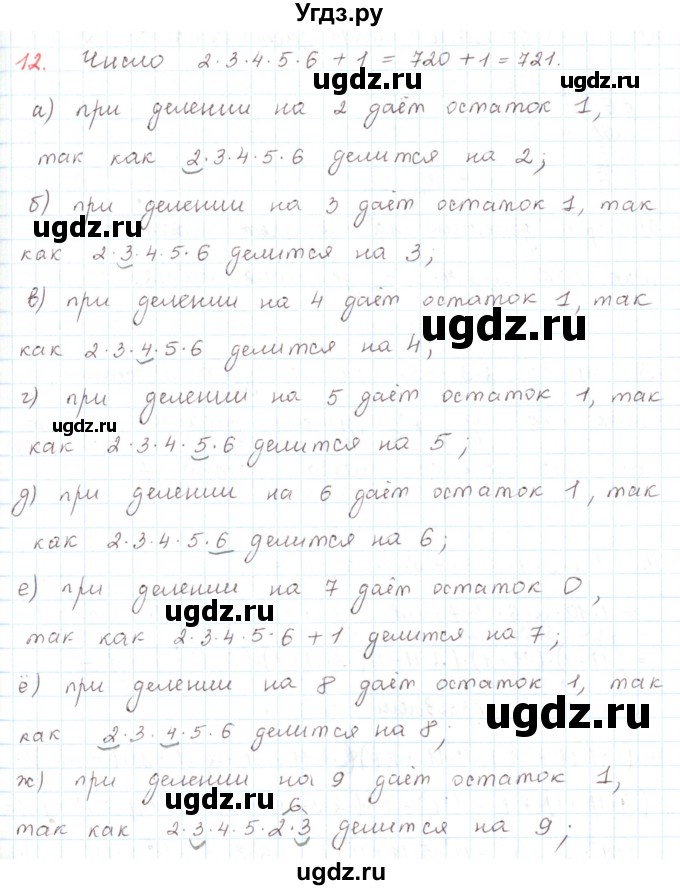 Угдз.ру
12. Число 2·3·4·5·6 + 1 = 720 + 1 = 721.
ugdz.ru ugdz.ru
а) при делении на 2 даёт остаток 1,
так как 2·3·4·5·6 делится на 2;
б) при делении на 3 даёт остаток 1, так
ugdz.ru
как 2·3·4·5·6 делится на 3;
в) при делении на 4 даёт остаток 1, так
ugdz.ru
как 2·3·4·5·6 делится на 4;
г) при делении на 5 даёт остаток 1, так
ugdz.ru
как 2·3·4·5·6 делится на 5;
д) при делении на 6 даёт остаток 1, так
как 2·3·4·5·6 делится на 6;
е) при делении на 7 даёт остаток 0,
ugdz.ru
так как 2·3·4·5·6+1 делится на 7;
ё) при делении на 8 даёт остаток 1, так
ugdz.ru
как 2·3·4·5·6 делится на 8;
ж) при делении на 9 даёт остаток 1,
ugdz.ru
6
так как 2·3·4·5·2·3 делится на 9;
ugdz.ru